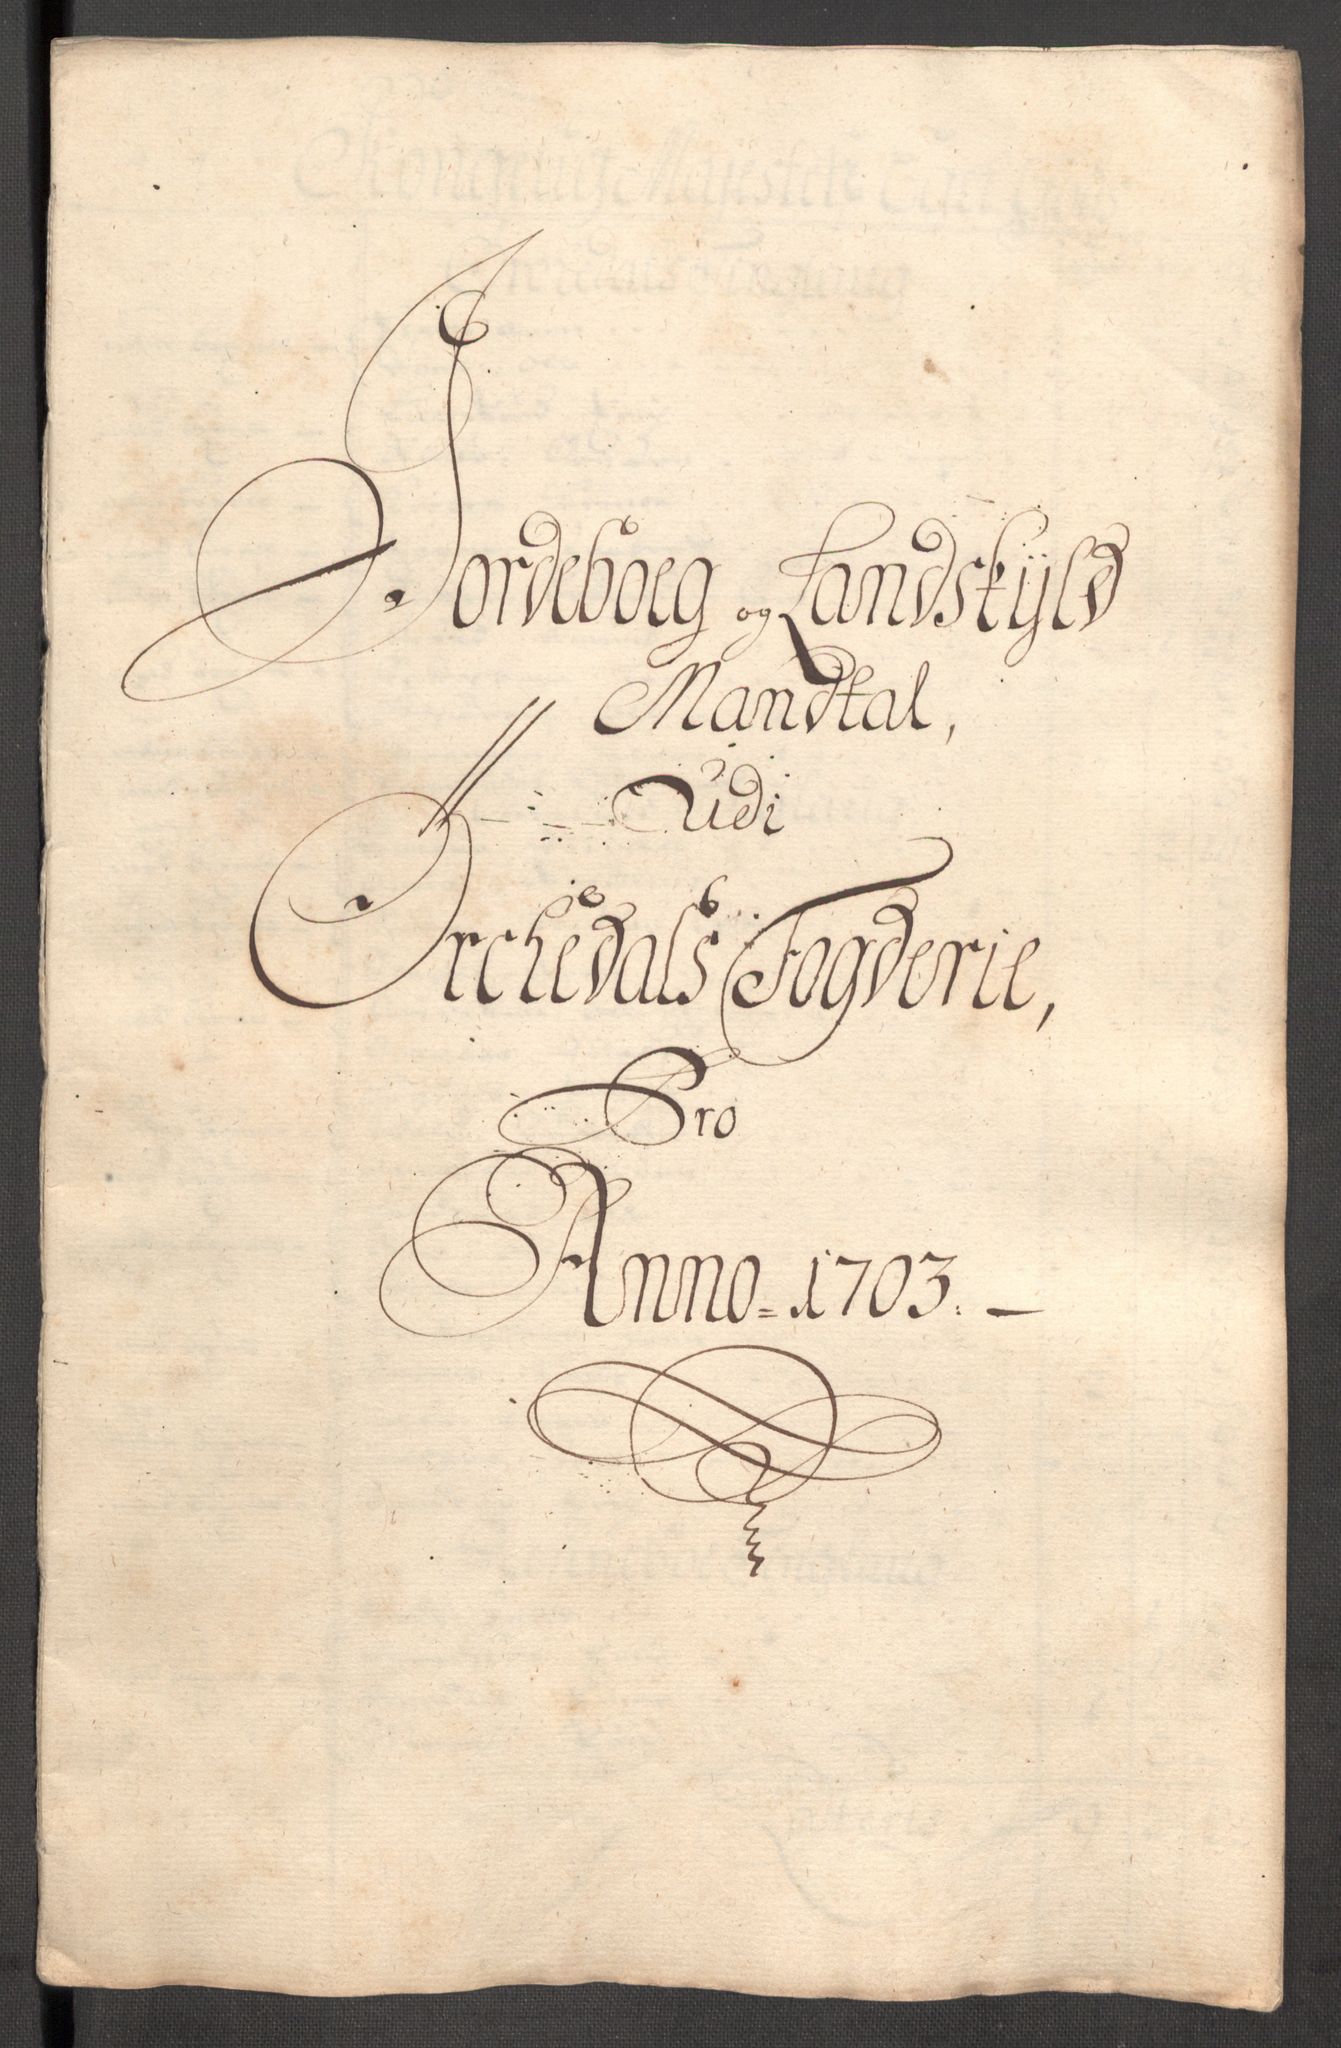 Jordeboeg og Landskÿld
Mandtal,
Udi
Orchedals Fogderie,
Pro
Anno = 1703. —